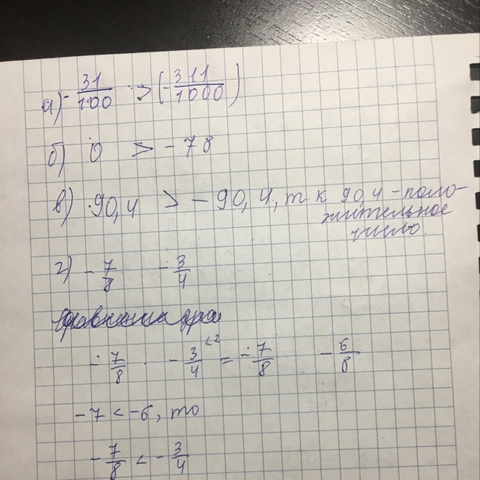 а) -31/100 > (-311/1000)
б) 0 > -78
в) 90,4 > -90,4, т к 90,4 - поло-
жительное
число
г) -7/8 -3/4
-7/8 -3/4 = -7/8 -6/8
-7 < -6, то
-7/8 < -3/4